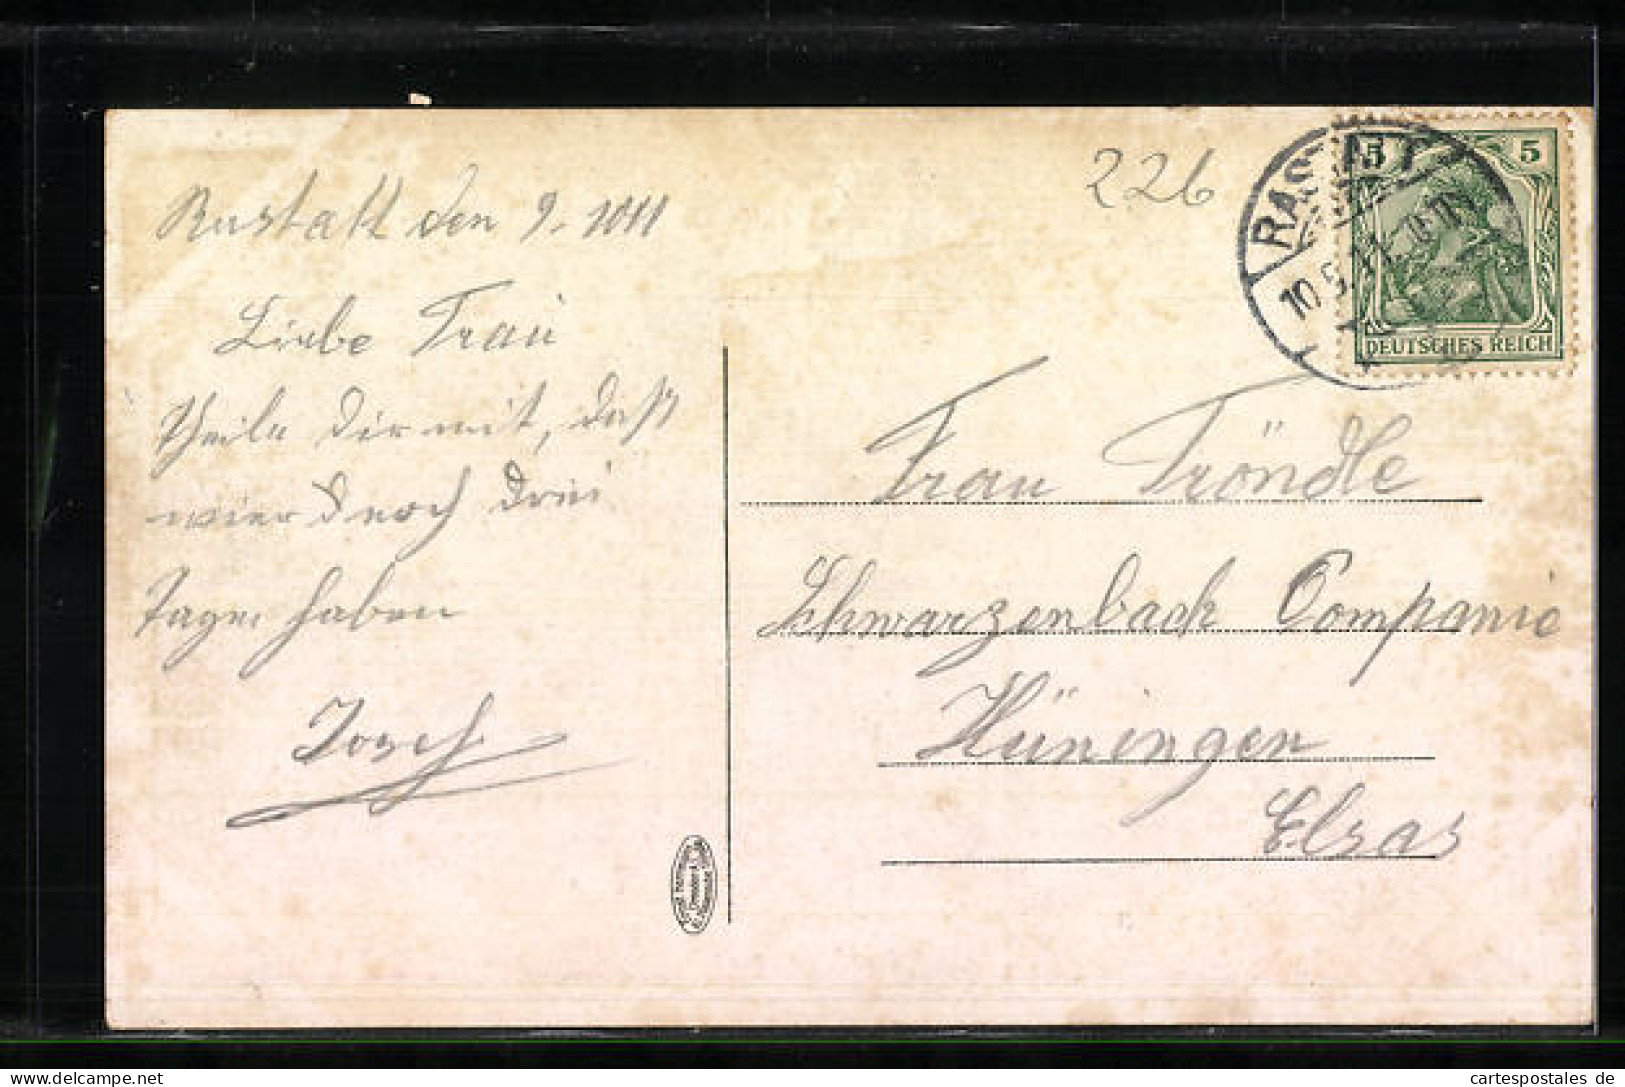 Rastatt den 9. 1911
Liebe Frau
Theile Dir mit, daß
wier noch drei
Tage haben
Josef
226
RASTATT
10.9.11.
5 5
DEUTSCHES REICH
Frau Tröndle
Schwarzenbach Companie
Hüningen
Elsas
cartespostales de
www.delcampe.net